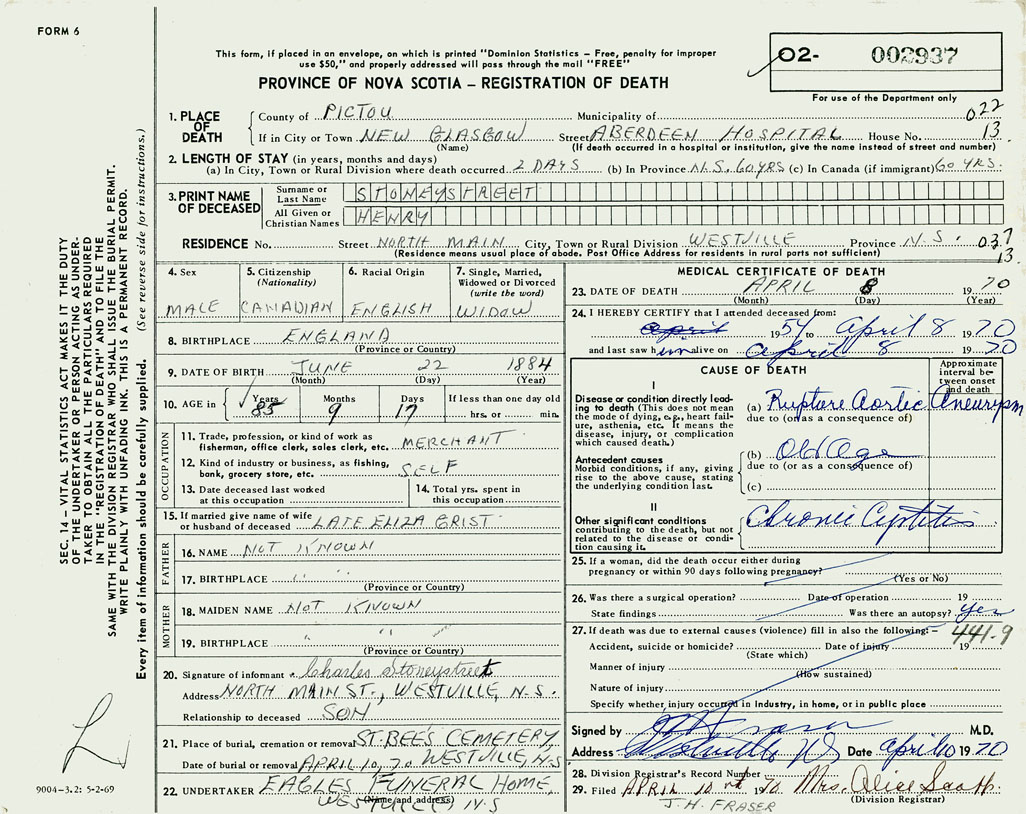 FORM 6
This form, if placed in an envelope, on which is printed "Dominion Statistics – Free, penalty for improper
use $50," and properly addressed will pass through the mail "FREE"
PROVINCE OF NOVA SCOTIA – REGISTRATION OF DEATH
O2- 002937
For use of the Department only
SEC. 14 – VITAL STATISTICS ACT MAKES IT THE DUTY
OF THE UNDERTAKER OR PERSON ACTING AS UNDER-
TAKER TO OBTAIN ALL THE PARTICULARS REQUIRED
IN THE "REGISTRATION OF DEATH" AND TO FILE THE
SAME WITH THE DIVISION REGISTRAR WHO SHALL ISSUE THE BURIAL PERMIT.
WRITE PLAINLY WITH UNFADING INK. THIS IS A PERMANENT RECORD.
Every item of information should be carefully supplied. (See reverse side for instructions.)
1. PLACE OF DEATH
County of PICTOU Municipality of 022
If in City or Town NEW GLASGOW Street ABERDEEN HOSPITAL House No. 13
(Name) (If death occurred in a hospital or institution, give the name instead of street and number)
2. LENGTH OF STAY (in years, months and days)
(a) In City, Town or Rural Division where death occurred 2 DAYS (b) In Province N.S. 60 YRS (c) In Canada (if immigrant) 60 YRS.
3. PRINT NAME OF DECEASED
Surname or Last Name STONEYSTREET
All Given or Christian Names HENRY
RESIDENCE No. Street NORTH MAIN City, Town or Rural Division WESTVILLE Province N.S. 037
(Residence means usual place of abode. Post Office Address for residents in rural parts not sufficient) 13.
4. Sex MALE
5. Citizenship (Nationality) CANADIAN
6. Racial Origin ENGLISH
7. Single, Married, Widowed or Divorced (write the word) WIDOW
8. BIRTHPLACE ENGLAND
(Province or Country)
9. DATE OF BIRTH JUNE 22 1884
(Month) (Day) (Year)
10. AGE in Years Months Days If less than one day old
85 9 17 hrs. or min.
OCCUPATION
11. Trade, profession, or kind of work as
fisherman, office clerk, sales clerk, etc. MERCHANT
12. Kind of industry or business, as fishing,
bank, grocery store, etc. SELF
13. Date deceased last worked
at this occupation
14. Total yrs. spent in
this occupation
15. If married give name of wife
or husband of deceased LATE ELIZA GRIST
FATHER
16. NAME NOT KNOWN
17. BIRTHPLACE " "
(Province or Country)
MOTHER
18. MAIDEN NAME NOT KNOWN
19. BIRTHPLACE " " "
(Province or Country)
20. Signature of informant Charles Stoneystreet
Address NORTH MAIN ST., WESTVILLE, N.S.
Relationship to deceased SON
21. Place of burial, cremation or removal ST. BEES CEMETERY,
Date of burial or removal APRIL 10, 70 WESTVILLE, N.S
22. UNDERTAKER EAGLES FUNERAL HOME,
(Name and address) WESTVILLE, N.S
MEDICAL CERTIFICATE OF DEATH
23. DATE OF DEATH APRIL 8 1970
(Month) (Day) (Year)
24. I HEREBY CERTIFY that I attended deceased from:
april 1954 to April 8 1970
and last saw him alive on april 8 1970
CAUSE OF DEATH
Approximate interval between onset and death
I
Disease or condition directly lead-
ing to death (This does not
mean the mode of dying, e.g., heart fail-
ure, asthenia, etc. It means the
disease, injury, or complication
which caused death.)
(a) Rupture Aortic Aneurysm
due to (or as a consequence of)
Antecedent causes
Morbid conditions, if any, giving
rise to the above cause, stating
the underlying condition last.
(b) Old Age
due to (or as a consequence of)
(c)
II
Other significant conditions
contributing to the death, but not
related to the disease or condi-
tion causing it.
Chronic Cystitis
25. If a woman, did the death occur either during
pregnancy or within 90 days following pregnancy?
(Yes or No)
26. Was there a surgical operation? Date of operation 19
State findings Was there an autopsy? yes
27. If death was due to external causes (violence) fill in also the following:– 441.9
Accident, suicide or homicide? Date of injury 19
(State which)
Manner of injury
(How sustained)
Nature of injury
Specify whether injury occurred in industry, in home, or in public place
Signed by Fraser M.D.
Address Westville NS Date April 10 1970
28. Division Registrar's Record Number
29. Filed APRIL 10 1970 Mrs. Alice
(Division Registrar)
J.H. FRASER
9004-3.2: 5-2-69